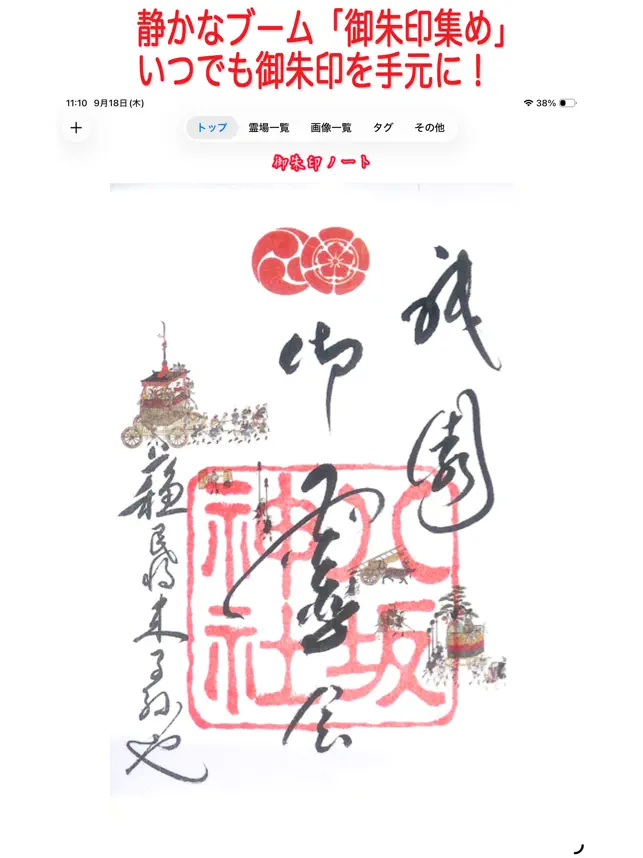 静かなブーム「御朱印集め」
いつでも御朱印を手元に！
11:10 9月18日(木) 38%
+ トップ 霊場一覧 画像一覧 タグ その他
御朱印ノート
祇園
御霊会
八坂神社
蘇民将来子孫也